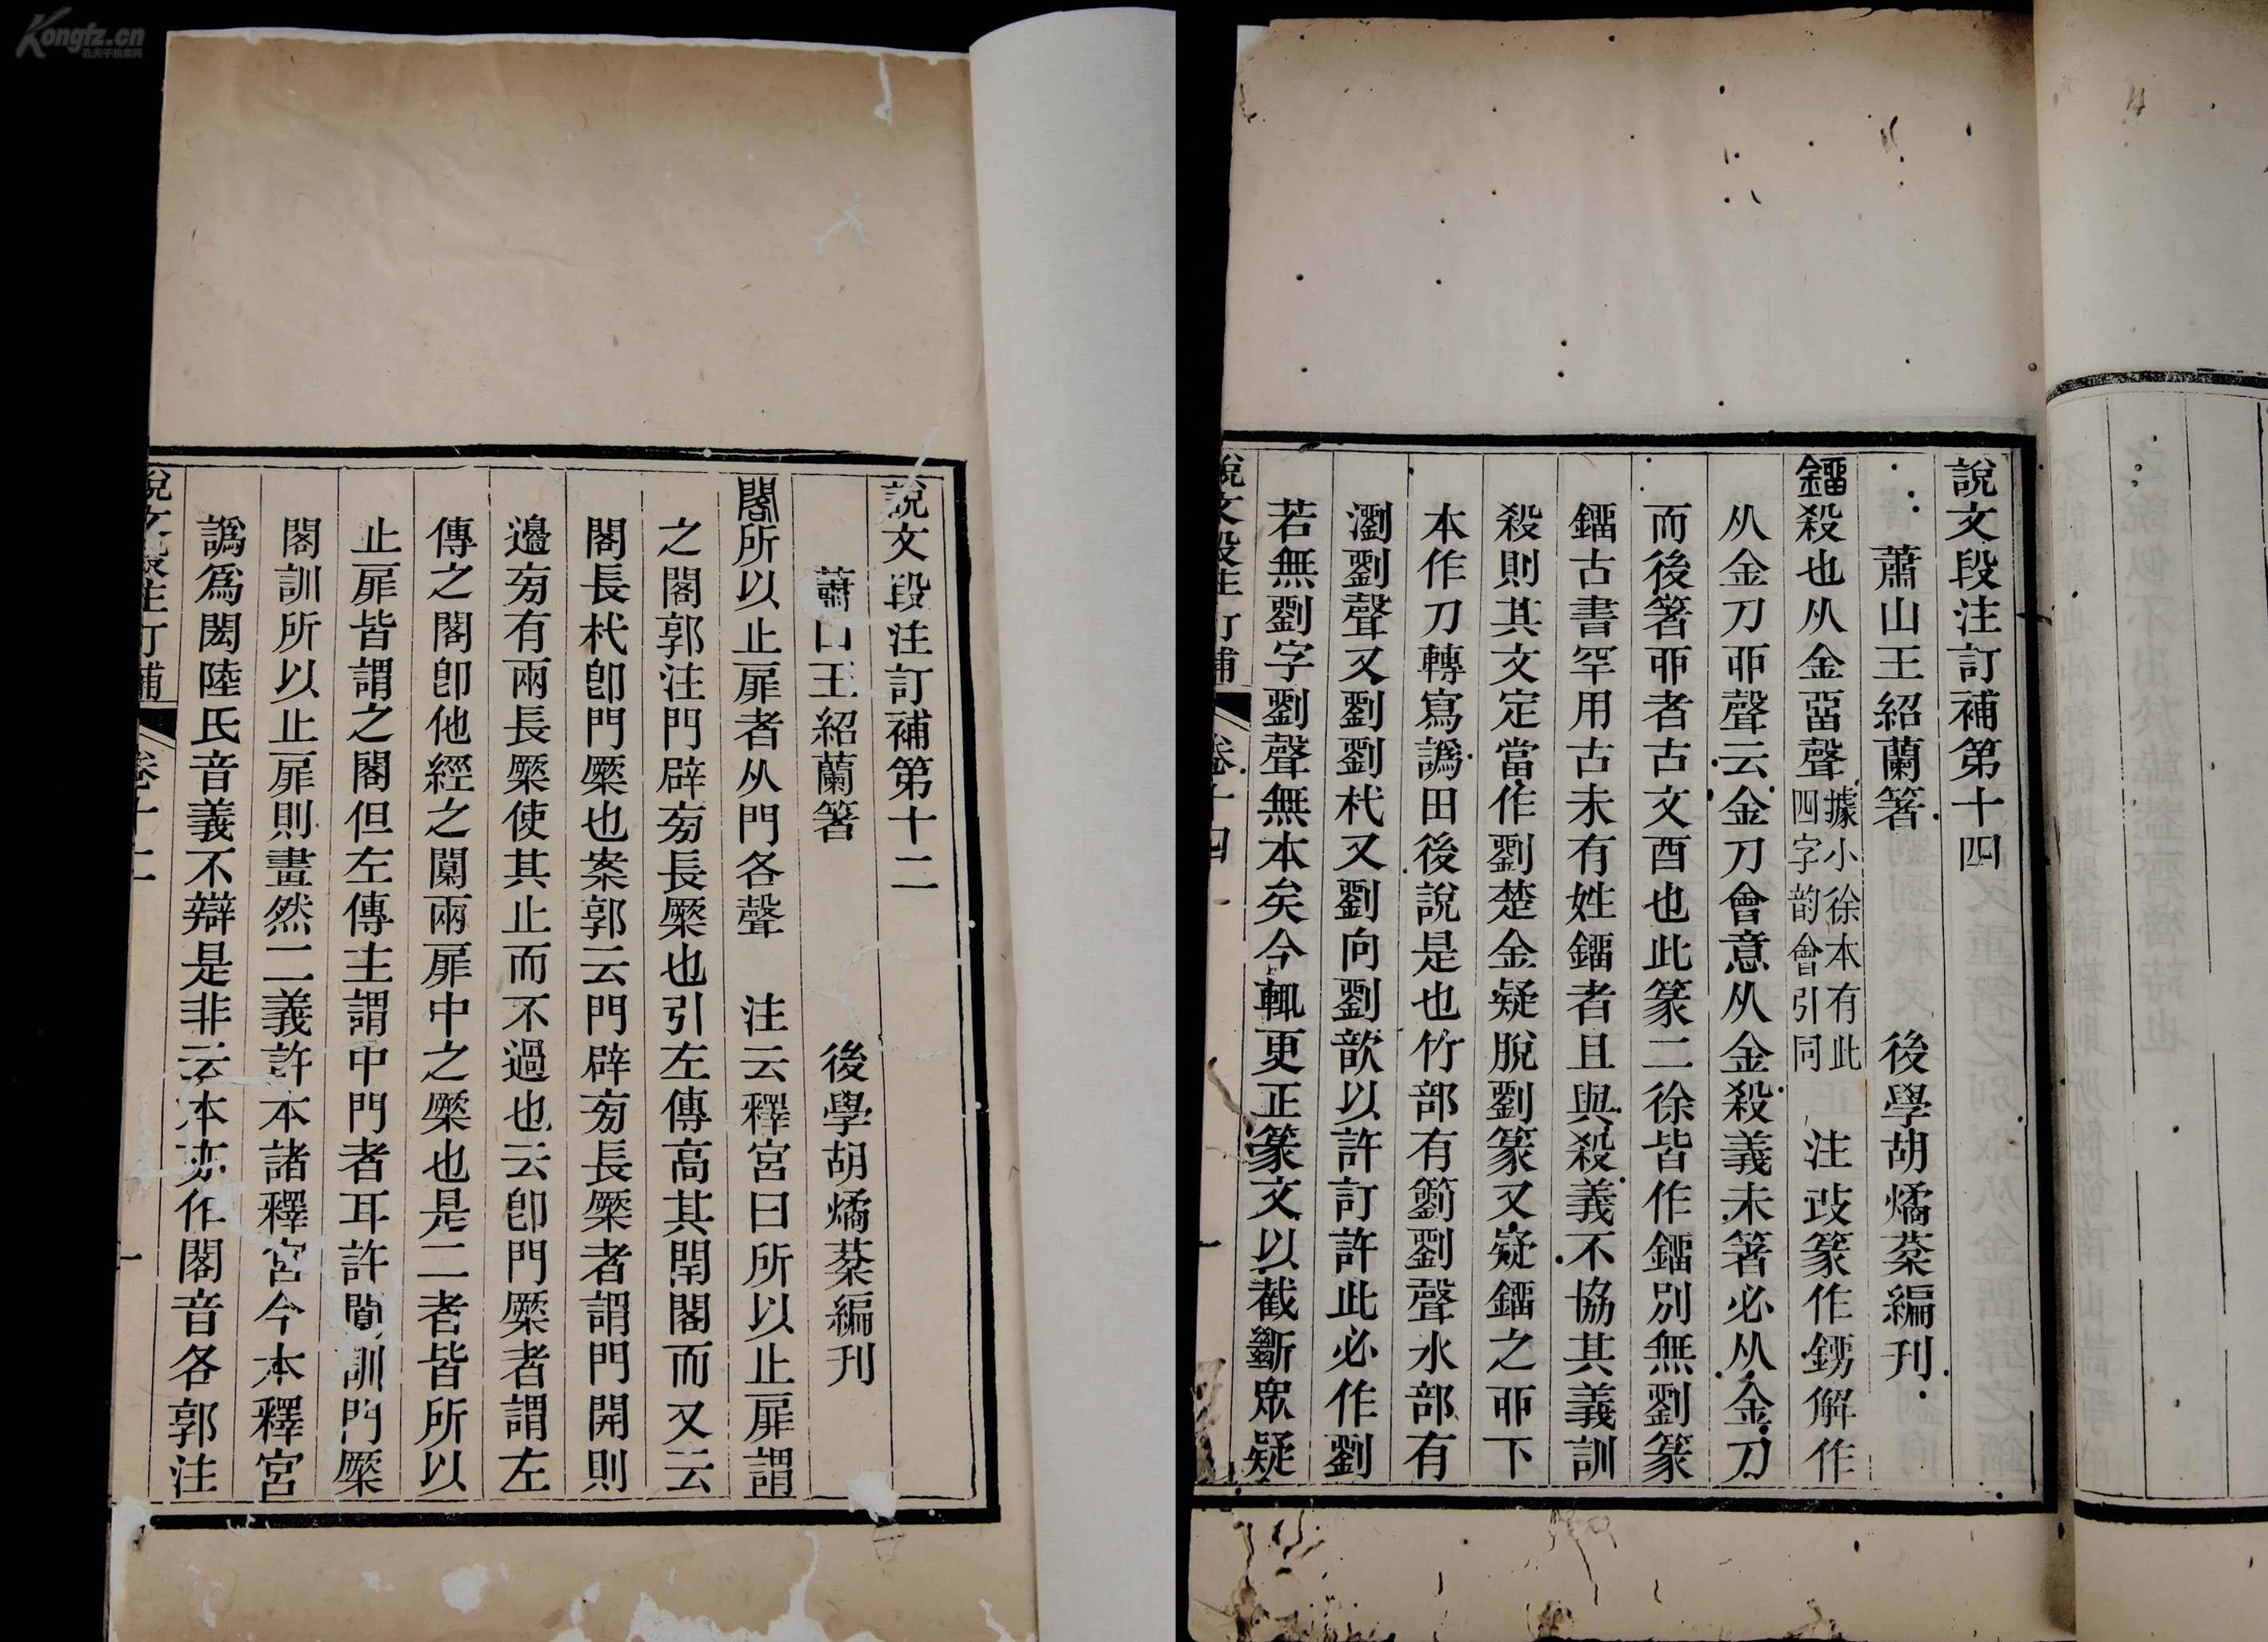 說文段注訂補第十二
蕭山王紹蘭箸　後學胡燏棻編刊
閣所以止扉者从門各聲　注云釋宮曰所以止扉謂
之閣郭注門辟㫄長橜也引左傳高其閈閣而又云
閣長杙卽門橜也案郭云門辟㫄長橜者謂門開則
邊㫄有兩長橜使其止而不過也云卽門橜者謂左
傳之閣卽他經之闑兩扉中之橜也是二者皆所以
止扉皆謂之閣但左傳主謂中門者耳許闑訓門橜
閣訓所以止扉則畫然二義許本諸釋宮今本釋宮
譌爲閎陸氏音義不辯是非云本亦作閣音各郭注
說文段注訂補　卷十二　一
說文段注訂補第十四
蕭山王紹蘭箸　後學胡燏棻編刊
鎦殺也从金畱聲據小徐本有此四字韵會引同　注改篆作鐂解作
从金刀丣聲云金刀會意从金殺義未箸必从金刀
而後箸丣者古文酉也此篆二徐皆作鎦別無劉篆
鎦古書罕用古未有姓鎦者且與殺義不協其義訓
殺則其文定當作劉楚金疑脫劉篆又疑鎦之丣下
本作刀轉寫譌田後說是也竹部有劉聲水部有
瀏劉聲又劉劉杙又劉向劉歆以許訂許此必作劉
若無劉字劉聲無本矣今輒更正篆文以截斷眾疑
說文段注訂補　卷十四　一
Kongfz.cn
孔夫子拍卖网